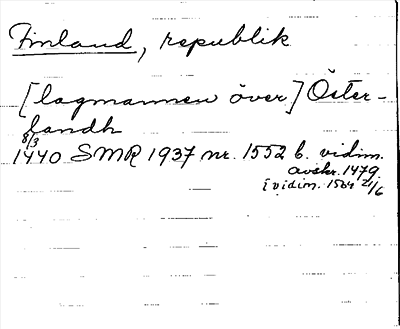 Finland, republik
[lagmannen över] Öster-
landh
8/3
1440 SMR 1937 nr. 1552 b. vidim.
avskr. 1479.
i vidim. 1564 21/6